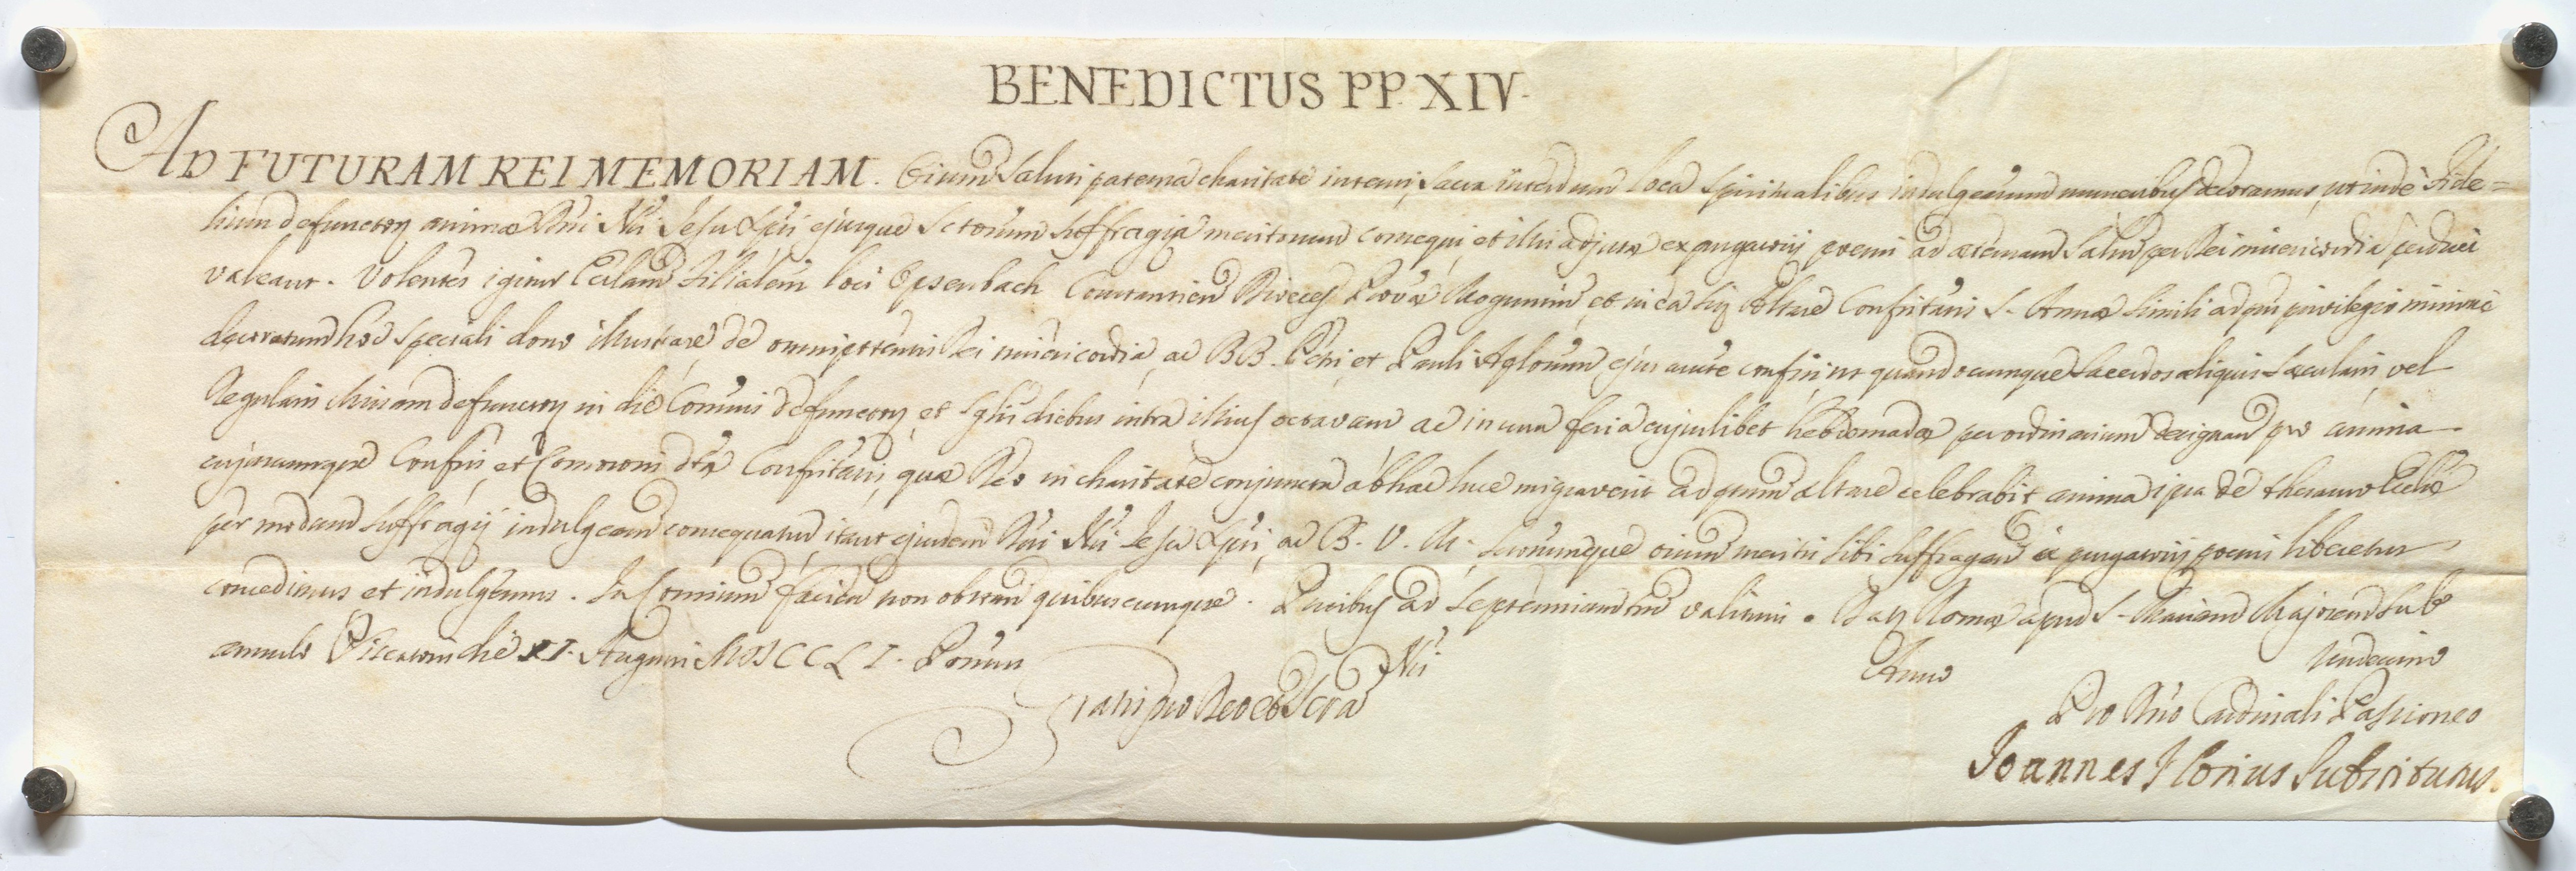 BENEDICTUS PP. XIV.
AD FUTURAM REI MEMORIAM. Oium saluti paterna charitate intenti, sacra interdum loca spiritualibus indulgentiarum muneribus decoramus, ut inde Fide=
lium defunctorum animæ Dñi Nři Jesu Xpti ejusque Sctorum suffragia meritorum consequi, et illis adjutæ ex purgatorij pœnis ad æternam salutem per Dei misericordia perduci
valeant. Volentes igitur Ecclam filialem loci Epsenbach Diœces Provæ Mogunti, et in ea situm Altare Confritatis S. Annæ simili ad pñs privilegio minime
decoratum hoc speciali dono illustrare, de omnipotentis Dei misericordia, ac BB. Petri, et Pauli Aplorum ejus aucte confisi, ut quandocumque Sacerdos aliquis Sæcularis, vel
Regularis Missam defunctorum in die Comõnis defunctorum, et sglis diebus intra illius octavam ac in una feria cujuslibet hebdomadæ per ordinarium designand pro anima
cujuscumque Confris, et Consororis dtæ Confritatis, quæ Deo in charitate conjuncta ab hac luce migraverit ad prtum altare celebrabit anima ipsa de thesauro Ecclæ
per modum suffragij indulgeam consequatur, ita ut ejusdem Dñi Nři Jesu Xpti, ac B. V. M. sctorumque oium meritis sibi suffragan à purgatorij pœnis liberetur
concedimus et indulgemus. In Conrium facien non obstan quibuscumque. Pñtibus ad Septennium tm valituris. Dat Romæ apud S. Mariam Majorem sub
annulo Piscatoris die XI. Augusti MDCCLI. Pontus Nři Anno Undecimo
Gratis pro Deo et Scra
Pro Dño Cardinali Passioneo
Joannes Florius Substitutus.